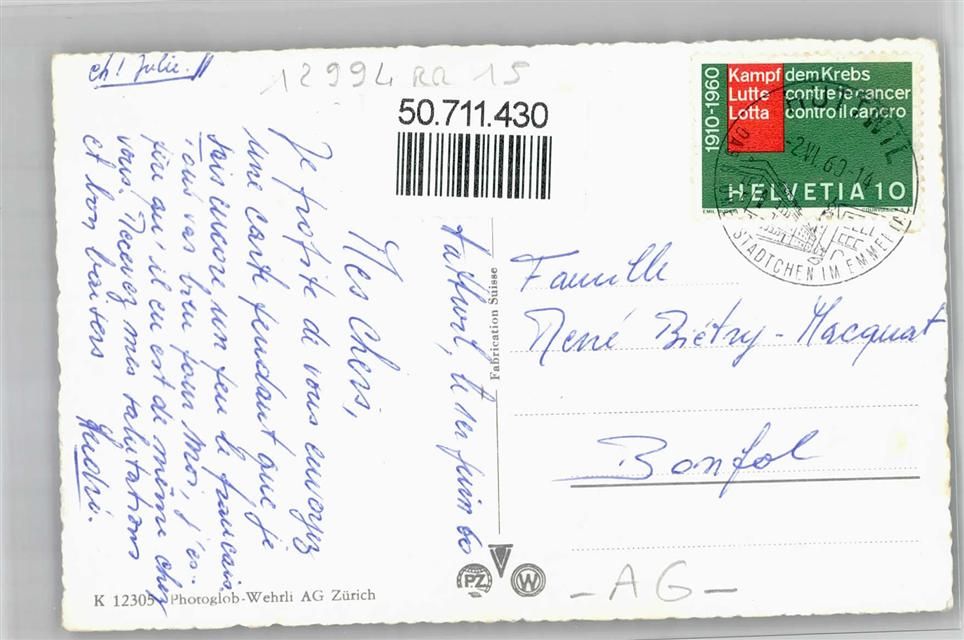 ch! Julie.
12994 RR 15
50.711.430
1910-1960
Kampf dem Krebs
Lutte contre le cancer
Lotta contro il cancro
HELVETIA 10
HUTTWIL
-2.VI.60-
STÄDTCHEN IM EMMENTAL
le 1er juin 60
Mes Chers,
Je profite di vous envoyez
une carte pendant que je
sais encore un peu le français.
Tous vas bien pour moi, j'es-
père qu'il en est de même chez
vous. Recevez mes salutations
et bon baisers
Famille
René Biétry-Macquat
Bonfol
Fabrication Suisse
PZ W
K 12305 Photoglob-Wehrli AG Zürich
-AG-